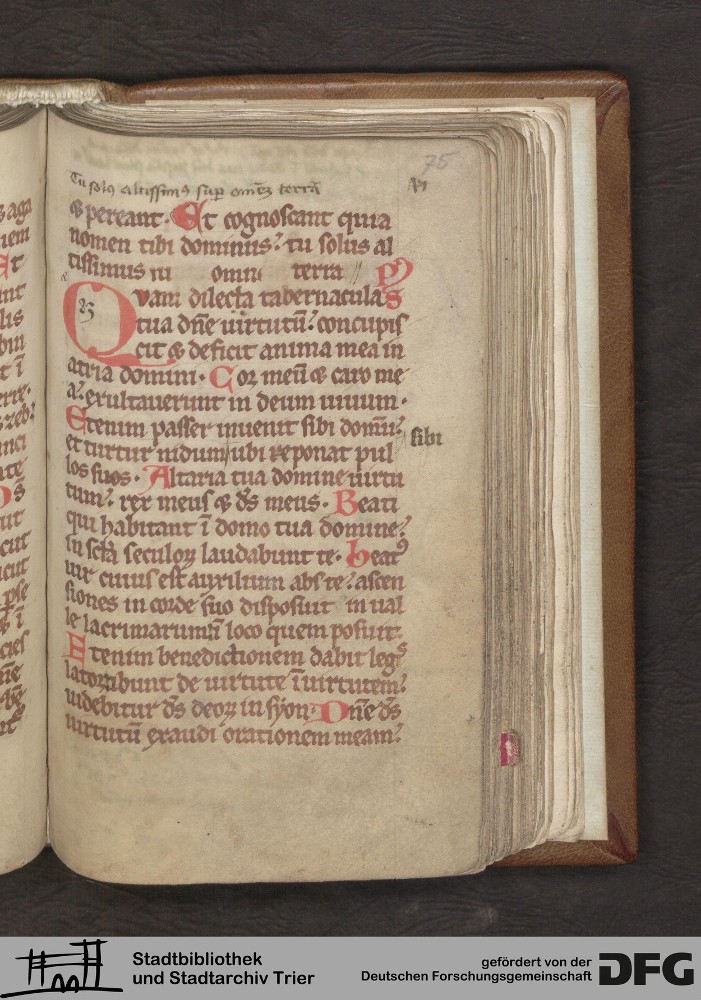 75
Tu solꝰ altissimꝰ sup omēs terrā
& pereant. Et cognoscant quia
nomen tibi dominus: tu solus al
tissimus in omni terra
Quam dilecta tabernacula ps
tua dn̄e uirtutū: concupis
cit & deficit anima mea in
atria domini. Cor meū & caro me
a: exultauerunt in deum uiuum.
Etenim passer inuenit sibi domū:
et turtur nidum ubi reponat pul sibi
los suos. Altaria tua domine uirtu
tum: rex meus & ds̄ meus. Beati
qui habitant ī domo tua domine:
in scl̄a seculoꝝ laudabunt te. beatꝰ
uir cuius est auxilium abs te: ascen
siones in corde suo disposuit in ual
le lacrimarum ī loco quem posuit.
Etenim benedictionem dabit legis
lator ibunt de uirtute ī uirtutem:
uidebitur ds̄ deoꝝ in syon. Dn̄e ds̄
uirtutū exaudi orationem meam:
Stadtbibliothek
und Stadtarchiv Trier
gefördert von der
Deutschen Forschungsgemeinschaft
DFG